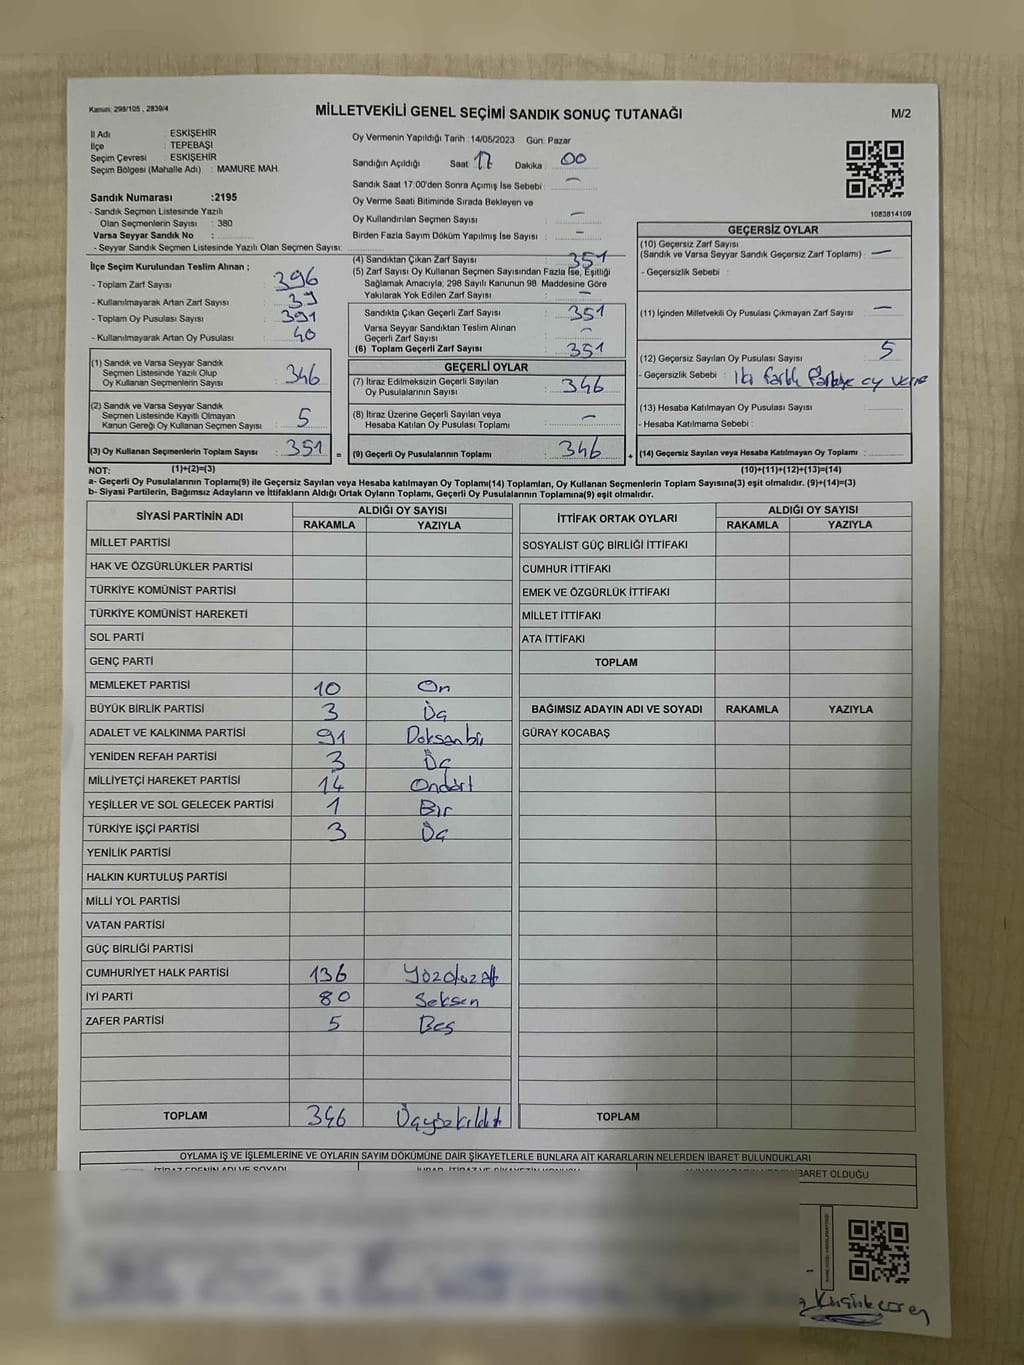 Kanun, 298/105 , 2839/4
MİLLETVEKİLİ GENEL SEÇİMİ SANDIK SONUÇ TUTANAĞI
M/2
İl Adı : ESKİŞEHİR
İlçe : TEPEBAŞI
Seçim Çevresi : ESKİŞEHİR
Seçim Bölgesi (Mahalle Adı) : MAMURE MAH.
Sandık Numarası :2195
- Sandık Seçmen Listesinde Yazılı
Olan Seçmenlerin Sayısı : 380
Varsa Seyyar Sandık No :
- Seyyar Sandık Seçmen Listesinde Yazılı Olan Seçmen Sayısı:
Oy Vermenin Yapıldığı Tarih : 14/05/2023 Gün: Pazar
Sandığın Açıldığı Saat : 17 Dakika : 00
Sandık Saat 17:00'den Sonra Açımış İse Sebebi : –
Oy Verme Saati Bitiminde Sırada Bekleyen ve
Oy Kullandırılan Seçmen Sayısı : –
Birden Fazla Sayım Döküm Yapılmış İse Sayısı : –
1083814109
İlçe Seçim Kurulundan Teslim Alınan ;
- Toplam Zarf Sayısı : 396
- Kullanılmayarak Artan Zarf Sayısı : 39
- Toplam Oy Pusulası Sayısı : 391
- Kullanılmayarak Artan Oy Pusulası : 40
(1) Sandık ve Varsa Seyyar Sandık
Seçmen Listesinde Yazılı Olup
Oy Kullanan Seçmenlerin Sayısı : 346
(2) Sandık ve Varsa Seyyar Sandık
Seçmen Listesinde Kayıtlı Olmayan
Kanun Gereği Oy Kullanan Seçmen Sayısı : 5
(3) Oy Kullanan Seçmenlerin Toplam Sayısı : 351 =
(4) Sandıktan Çıkan Zarf Sayısı : 351
(5) Zarf Sayısı Oy Kullanan Seçmen Sayısından Fazla İse, Eşitliği
Sağlamak Amacıyla, 298 Sayılı Kanunun 98. Maddesine Göre
Yakılarak Yok Edilen Zarf Sayısı : –
Sandıkta Çıkan Geçerli Zarf Sayısı : 351
Varsa Seyyar Sandıktan Teslim Alınan
Geçerli Zarf Sayısı : –
(6) Toplam Geçerli Zarf Sayısı : 351
GEÇERLİ OYLAR
(7) İtiraz Edilmeksizin Geçerli Sayılan
Oy Pusulalarının Sayısı : 346
(8) İtiraz Üzerine Geçerli Sayılan veya
Hesaba Katılan Oy Pusulası Toplamı : –
(9) Geçerli Oy Pusulalarının Toplamı : 346 +
GEÇERSİZ OYLAR
(10) Geçersiz Zarf Sayısı
(Sandık ve Varsa Seyyar Sandık Geçersiz Zarf Toplamı) : –
- Geçersizlik Sebebi :
(11) İçinden Milletvekili Oy Pusulası Çıkmayan Zarf Sayısı : –
(12) Geçersiz Sayılan Oy Pusulası Sayısı : 5
- Geçersizlik Sebebi : İki farklı Partiye oy verme
(13) Hesaba Katılmayan Oy Pusulası Sayısı :
- Hesaba Katılmama Sebebi :
(14) Geçersiz Sayılan veya Hesaba Katılmayan Oy Toplamı :
NOT: (1)+(2)=(3) (10)+(11)+(12)+(13)=(14)
a- Geçerli Oy Pusulalarının Toplamı(9) ile Geçersiz Sayılan veya Hesaba katılmayan Oy Toplamı(14) Toplamları, Oy Kullanan Seçmenlerin Toplam Sayısına(3) eşit olmalıdır. (9)+(14)=(3)
b- Siyasi Partilerin, Bağımsız Adayların ve İttifakların Aldığı Ortak Oyların Toplamı, Geçerli Oy Pusulalarının Toplamına(9) eşit olmalıdır.
SİYASİ PARTİNİN ADI ALDIĞI OY SAYISI
RAKAMLA YAZIYLA
MİLLET PARTİSİ
HAK VE ÖZGÜRLÜKLER PARTİSİ
TÜRKİYE KOMÜNİST PARTİSİ
TÜRKİYE KOMÜNİST HAREKETİ
SOL PARTİ
GENÇ PARTİ
MEMLEKET PARTİSİ 10 On
BÜYÜK BİRLİK PARTİSİ 3 Üç
ADALET VE KALKINMA PARTİSİ 91 Doksanbir
YENİDEN REFAH PARTİSİ 3 Üç
MİLLİYETÇİ HAREKET PARTİSİ 14 Ondört
YEŞİLLER VE SOL GELECEK PARTİSİ 1 Bir
TÜRKİYE İŞÇİ PARTİSİ 3 Üç
YENİLİK PARTİSİ
HALKIN KURTULUŞ PARTİSİ
MİLLİ YOL PARTİSİ
VATAN PARTİSİ
GÜÇ BİRLİĞİ PARTİSİ
CUMHURİYET HALK PARTİSİ 136 Yüzotuzaltı
İYİ PARTİ 80 Seksen
ZAFER PARTİSİ 5 Beş
TOPLAM 346 Üçyüzkırkaltı
İTTİFAK ORTAK OYLARI ALDIĞI OY SAYISI
RAKAMLA YAZIYLA
SOSYALİST GÜÇ BİRLİĞİ İTTİFAKI
CUMHUR İTTİFAKI
EMEK VE ÖZGÜRLÜK İTTİFAKI
MİLLET İTTİFAKI
ATA İTTİFAKI
TOPLAM
BAĞIMSIZ ADAYIN ADI VE SOYADI RAKAMLA YAZIYLA
GÜRAY KOCABAŞ
TOPLAM
OYLAMA İŞ VE İŞLEMLERİNE VE OYLARIN SAYIM DÖKÜMÜNE DAİR ŞİKAYETLERLE BUNLARA AİT KARARLARIN NELERDEN İBARET BULUNDUKLARI
İTİRAZ EDENİN ADI VE SOYADI
İBARET OLDUĞU